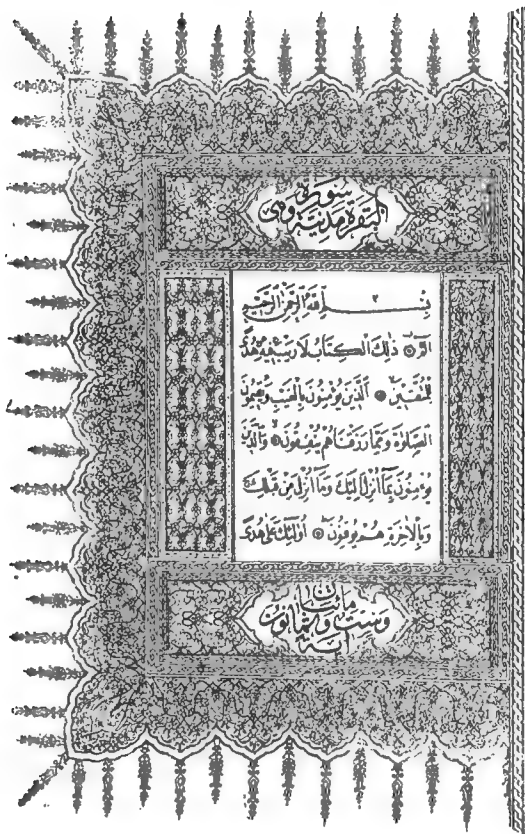 سورة
البقرة مدنية وهي
بسم الله الرحمن الرحيم
الم ذلك الكتاب لا ريب فيه هدى
للمتقين الذين يؤمنون بالغيب ويقيمون
الصلوة ومما رزقناهم ينفقون والذين
يؤمنون بما أنزل إليك وما أنزل من قبلك
وبالآخرة هم يوقنون أولئك على هدى
مائتان
وست وثمانون
آية